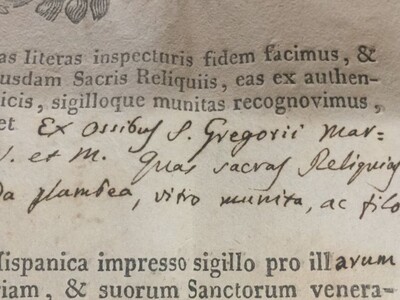 as literas inspecturis fidem facimus, &
usdam Sacris Reliquiis, eas ex authen-
icis, sigilloque munitas recognovimus,
et Ex Ossibus S. Gregorii Mar=
V. et M. Quas sacras Reliquias
da plumbea, vitro munita, ac filo
Hispanica impresso sigillo pro illarum
riam, & suorum Sanctorum venera-